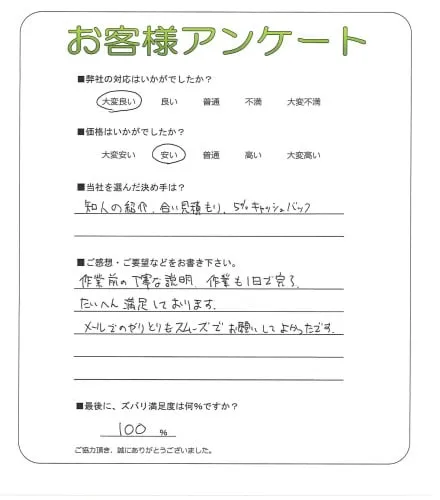 お客様アンケート
■弊社の対応はいかがでしたか？
大変良い 良い 普通 不満 大変不満
■価格はいかがでしたか？
大変安い 安い 普通 高い 大変高い
■当社を選んだ決め手は？
知人の紹介、合い見積もり、5%キャッシュバック
■ご感想・ご要望などをお書き下さい。
作業前の丁寧な説明、作業も1日で完了、
たいへん満足しております。
メールでのやりとりもスムーズでお願いしてよかったです。
■最後に、ズバリ満足度は何%ですか？
100 %
ご協力頂き、誠にありがとうございました。